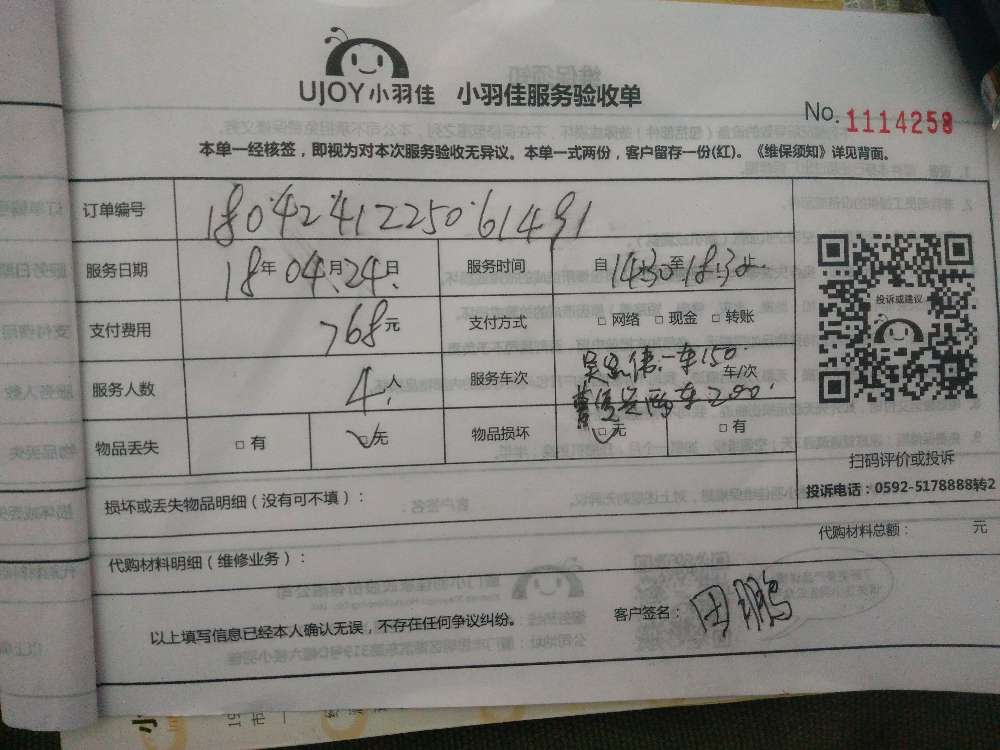 UJOY小羽佳 小羽佳服务验收单
No. 1114258
本单一经核签，即视为对本次服务验收无异议。本单一式两份，客户留存一份(红)。《维保须知》详见背面。
订单编号 1804241225061491
服务日期 18年 04月 24日 服务时间 自 14:30 至 18:30 止
支付费用 768元 支付方式 □ 网络 □ 现金 □ 转账
服务人数 4人 服务车次 一车150 车/次
车200
物品丢失 □ 有 □ 无 物品损坏 □ 无 □ 有
投诉或建议
扫码评价或投诉
投诉电话：0592-5178888转2
损坏或丢失物品明细（没有可不填）：
代购材料明细（维修业务）：
代购材料总额： 元
以上填写信息已经本人确认无误，不存在任何争议纠纷。
客户签名：田鹏